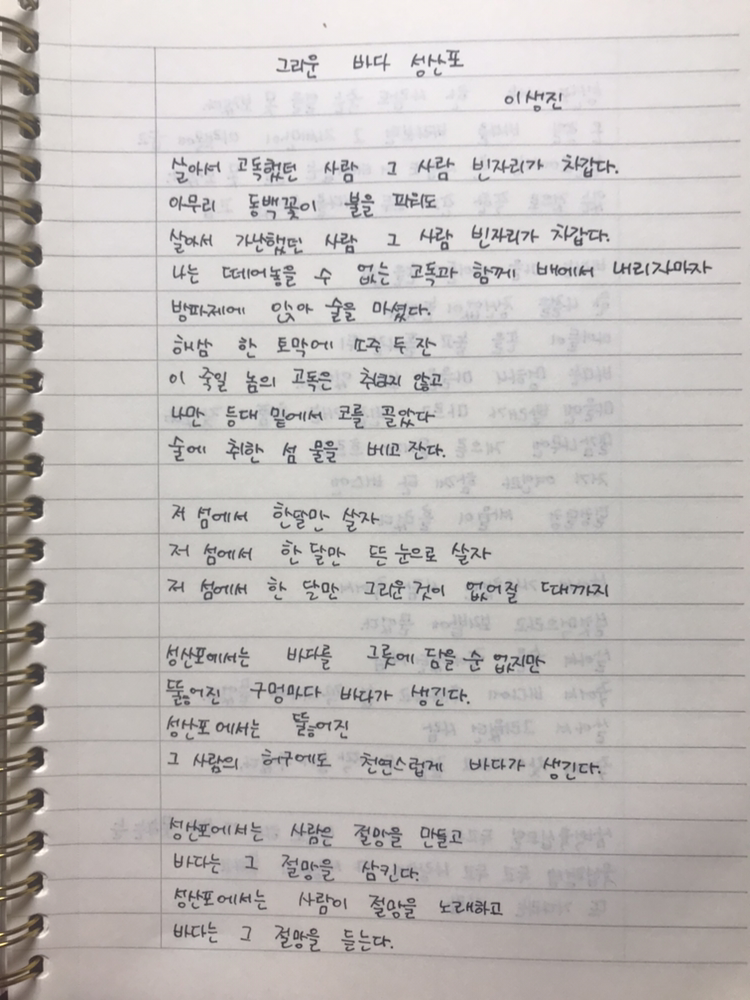 그리운 바다 성산포
이생진
살아서 고독했던 사람 그 사람 빈자리가 차갑다.
아무리 동백꽃이 불을 피워도
살아서 가난했던 사람 그 사람 빈자리가 차갑다.
나는 떼어놓을 수 없는 고독과 함께 배에서 내리자마자
방파제에 앉아 술을 마셨다.
해삼 한 토막에 소주 두 잔
이 죽일 놈의 고독은 취하지 않고
나만 등대 밑에서 코를 골았다
술에 취한 섬 물을 베고 잔다.
저 섬에서 한달만 살자
저 섬에서 한 달만 뜬 눈으로 살자
저 섬에서 한 달만 그리운 것이 없어질 때까지
성산포에서는 바다를 그릇에 담을 순 없지만
뚫어진 구멍마다 바다가 생긴다.
성산포에서는 뚫어진
그 사람의 허구에도 천연스럽게 바다가 생긴다.
성산포에서는 사람은 절망을 만들고
바다는 그 절망을 삼킨다.
성산포에서는 사람이 절망을 노래하고
바다는 그 절망을 듣는다.